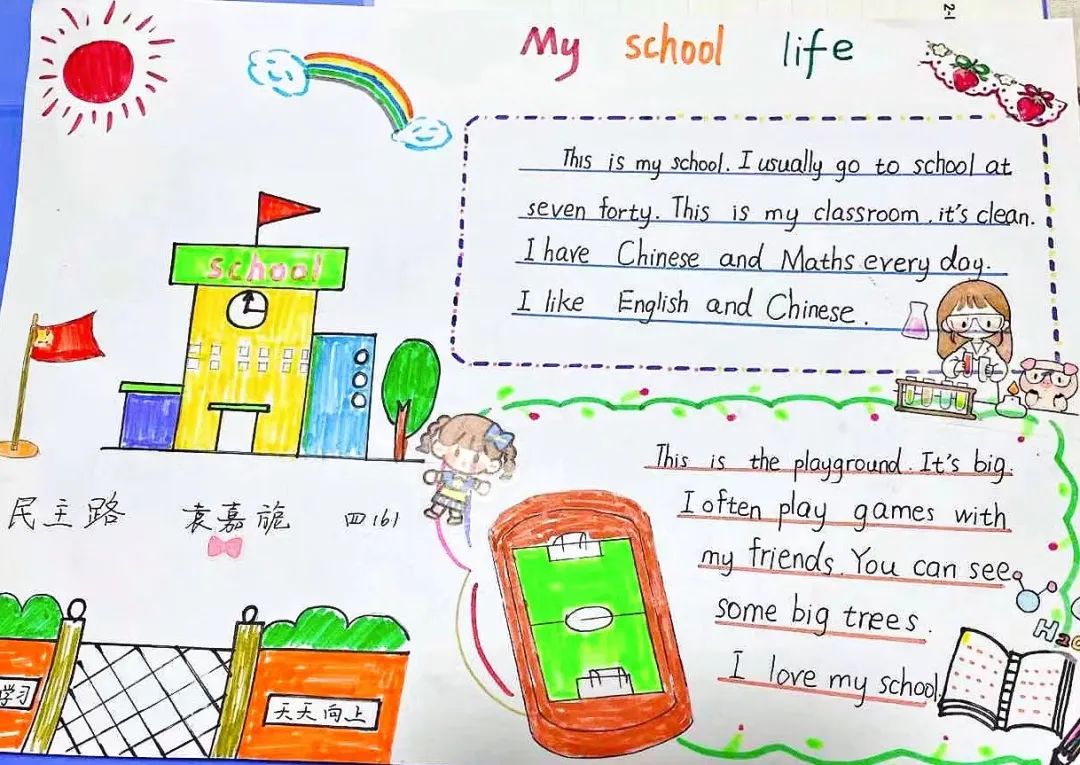 2-1
My school life
This is my school. I usually go to school at
seven forty. This is my classroom. it's clean.
I have Chinese and Maths every day.
I like English and Chinese.
school
This is the playground. It's big.
I often play games with
my friends. You can see
some big trees.
I love my school.
民主路 袁嘉旎 四(6)
学习
天天向上
H2O